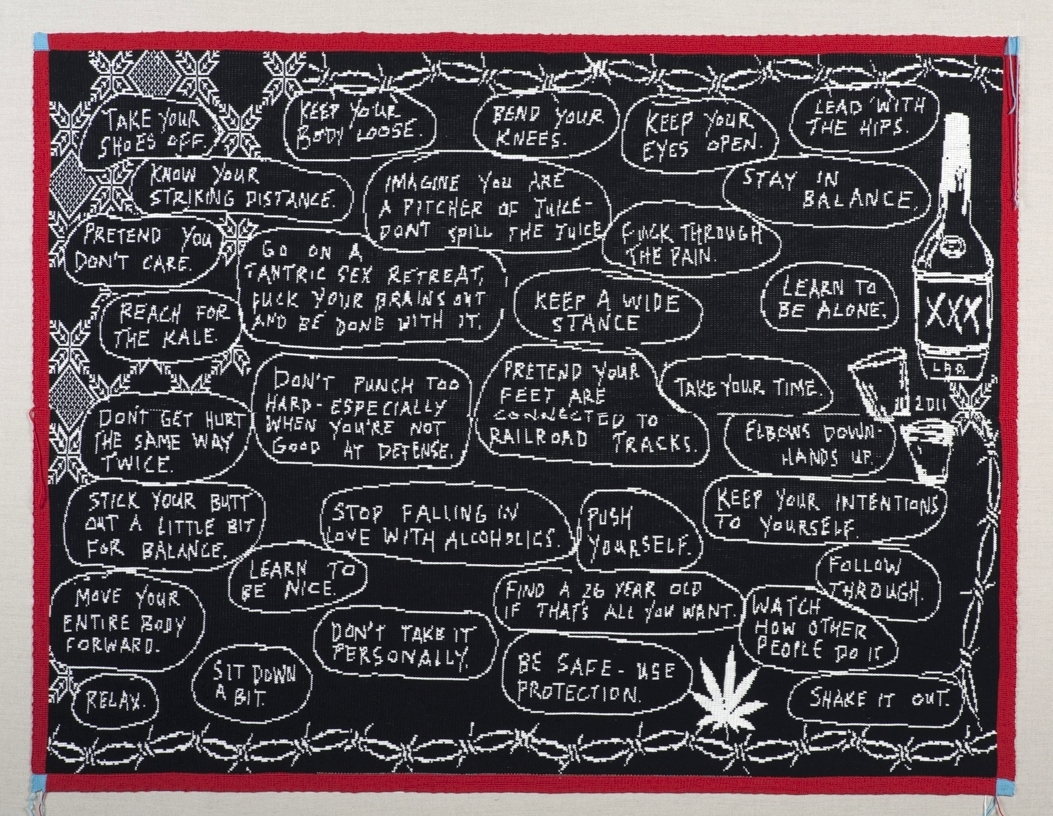 TAKE YOUR
SHOES OFF.
KEEP YOUR
BODY LOOSE.
BEND YOUR
KNEES.
KEEP YOUR
EYES OPEN.
LEAD WITH
THE HIPS.
KNOW YOUR
STRIKING DISTANCE.
IMAGINE YOU ARE
A PITCHER OF JUICE-
DON'T SPILL THE JUICE
STAY IN
BALANCE.
PRETEND YOU
DON'T CARE.
GO ON A
TANTRIC SEX RETREAT,
FUCK YOUR BRAINS OUT
AND BE DONE WITH IT.
FUCK THROUGH
THE PAIN.
REACH FOR
THE KALE.
KEEP A WIDE
STANCE
LEARN TO
BE ALONE.
XXX
L.A.D.
2011
DON'T GET HURT
THE SAME WAY
TWICE.
DON'T PUNCH TOO
HARD - ESPECIALLY
WHEN YOU'RE NOT
GOOD AT DEFENSE.
PRETEND YOUR
FEET ARE
CONNECTED TO
RAILROAD TRACKS.
TAKE YOUR TIME.
ELBOWS DOWN-
HANDS UP.
STICK YOUR BUTT
OUT A LITTLE BIT
FOR BALANCE.
STOP FALLING IN
LOVE WITH ALCOHOLICS.
PUSH
YOURSELF.
KEEP YOUR INTENTIONS
TO YOURSELF.
LEARN TO
BE NICE.
FOLLOW
THROUGH.
MOVE YOUR
ENTIRE BODY
FORWARD.
FIND A 26 YEAR OLD
IF THAT'S ALL YOU WANT.
WATCH
HOW OTHER
PEOPLE DO IT
DON'T TAKE IT
PERSONALLY.
SIT DOWN
A BIT.
BE SAFE - USE
PROTECTION.
RELAX.
SHAKE IT OUT.